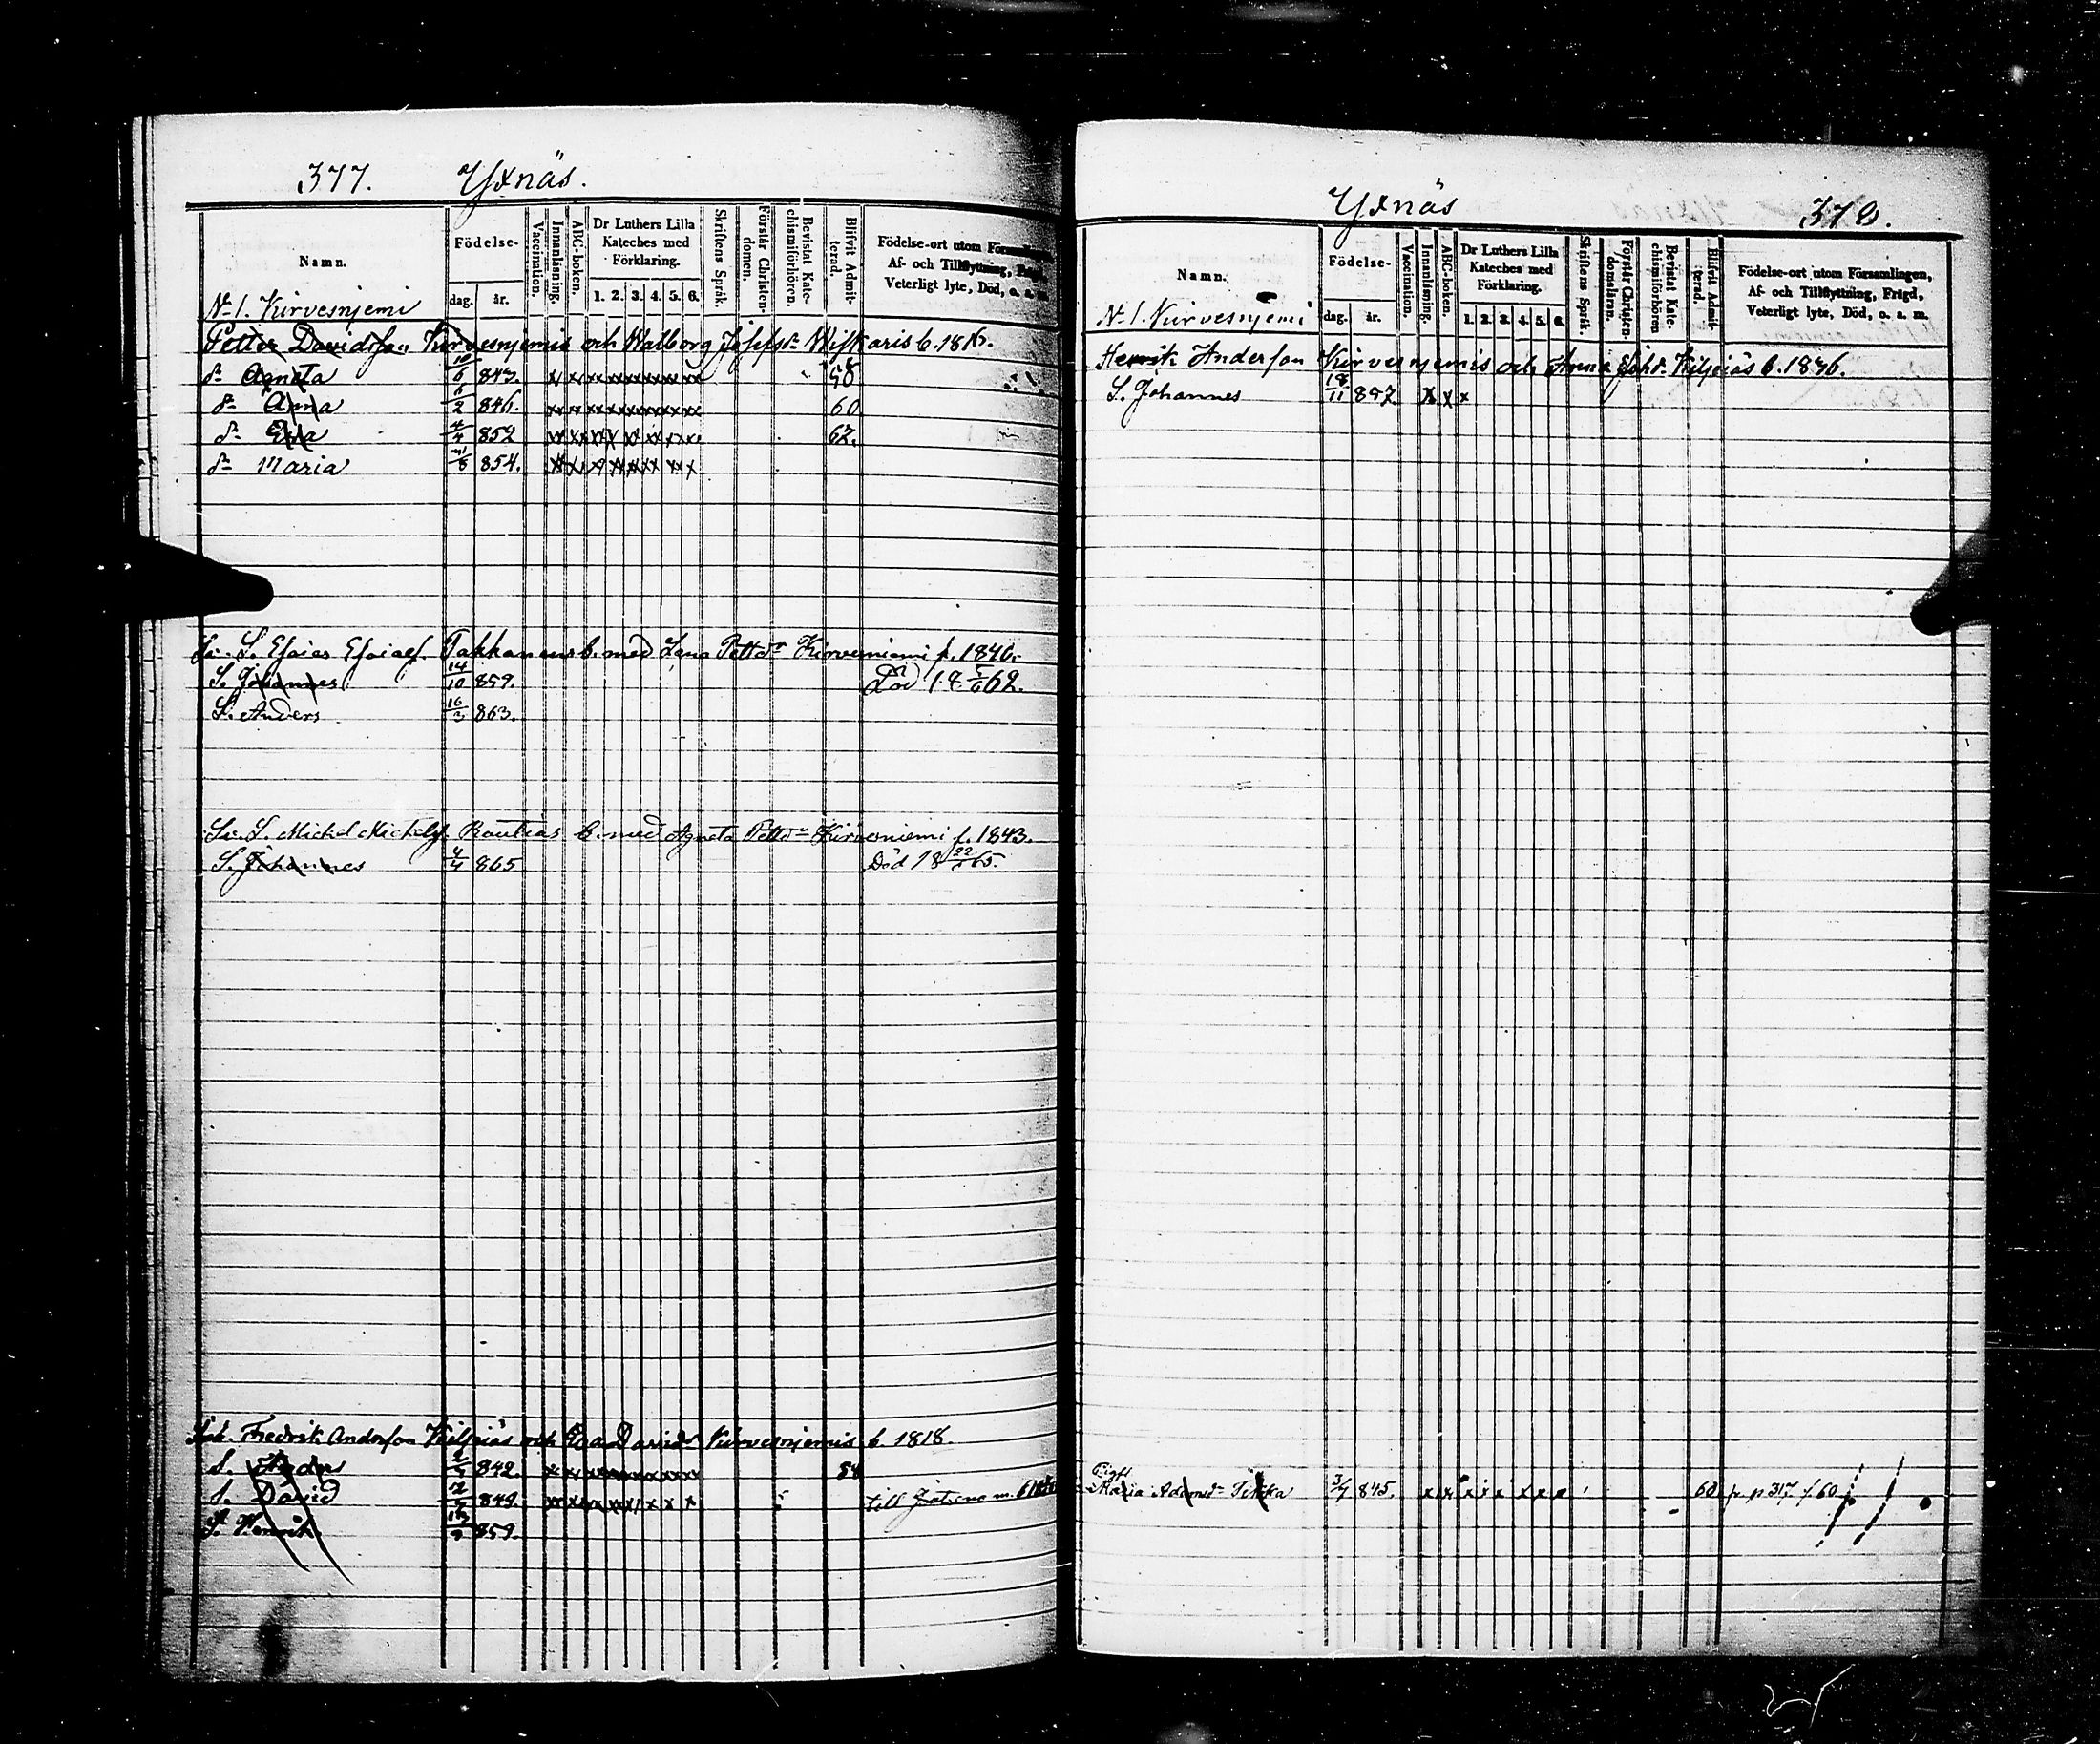 377. Yxnäs.
Namn. Födelse- dag. år. Vaccination. Innanläsning. ABC-boken. Dr Luthers Lilla Kateches med Förklaring. 1. 2. 3. 4. 5. 6. Skriftens Språk. Förstår Christendomen. Bevistat Katechismiförhören. Blifvit Admitterad. Födelse-ort utom Församlingen, Af- och Tillflyttning, Frigd, Veterligt lyte, Död, o. a. m.
No 1. Kirvesnjemi
Petter Davidsson Kirvesnjemis och Walborg Josefsdr Wiskaris b. 1816.
dr Agneta 10/6 843. 58
dr Anna 6/2 846. 60
dr Eva 4/4 852 67.
dr Maria /8 854.
Sv. S. Esaias Esaiasf. Takkanens b. med Lena Pettdr Kirvesniemi f. 1840.
S. Johannes 14/10 859. Död 18 /6 62.
S. Anders 16/3 863.
Sv. S. Michel Michelsf. Rautias b. med Agneta Pettdr Kirvesniemi f. 1843.
S. Johannes 4/4 865 Död 18 22/ 65.
Fredrik Andersson Kilpiäs och Eva Davidsdr Kirvesnjemis b. 1818.
S. 842. 54
S. David 12/ 849. till
S. Henrik 859.
Yxnäs 378.
Namn. Födelse- dag. år. Vaccination. Innanläsning. ABC-boken. Dr Luthers Lilla Kateches med Förklaring. 1. 2. 3. 4. 5. 6. Skriftens Språk. Förstår Christendomsläran. Bevistat Katechismiförhören Blifvit Admitterad. Födelse-ort utom Församlingen, Af- och Tillflyttning, Frigd, Veterligt lyte, Död, o. a. m.
No 1. Kirvesnjemi
Henrik Anderson Kirvesnjemis och Anna Johdr Kilpiäs b. 1836.
S. Johannes 18/11 857. x x x
Pigf
Maria Adamsdr Tikka 3/7 845. 60 fr p 317 / 60